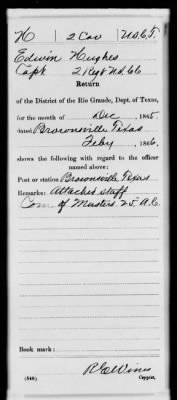 H | 2 Cav | U.S.C.T.
Edwin Hughes
Capt 2 Regt U.S. Cc
Return
of the District of the Rio Grande, Dept. of Texas,
for the month of Dec, 1865.
dated Brownsville Texas
Feby, 1866.
shows the following with regard to the officer
named above:
Post or station Brownsville Texas
Remarks: Attached staff
Com of Musters 25 A.C.
Book mark:
(546) Copyist.